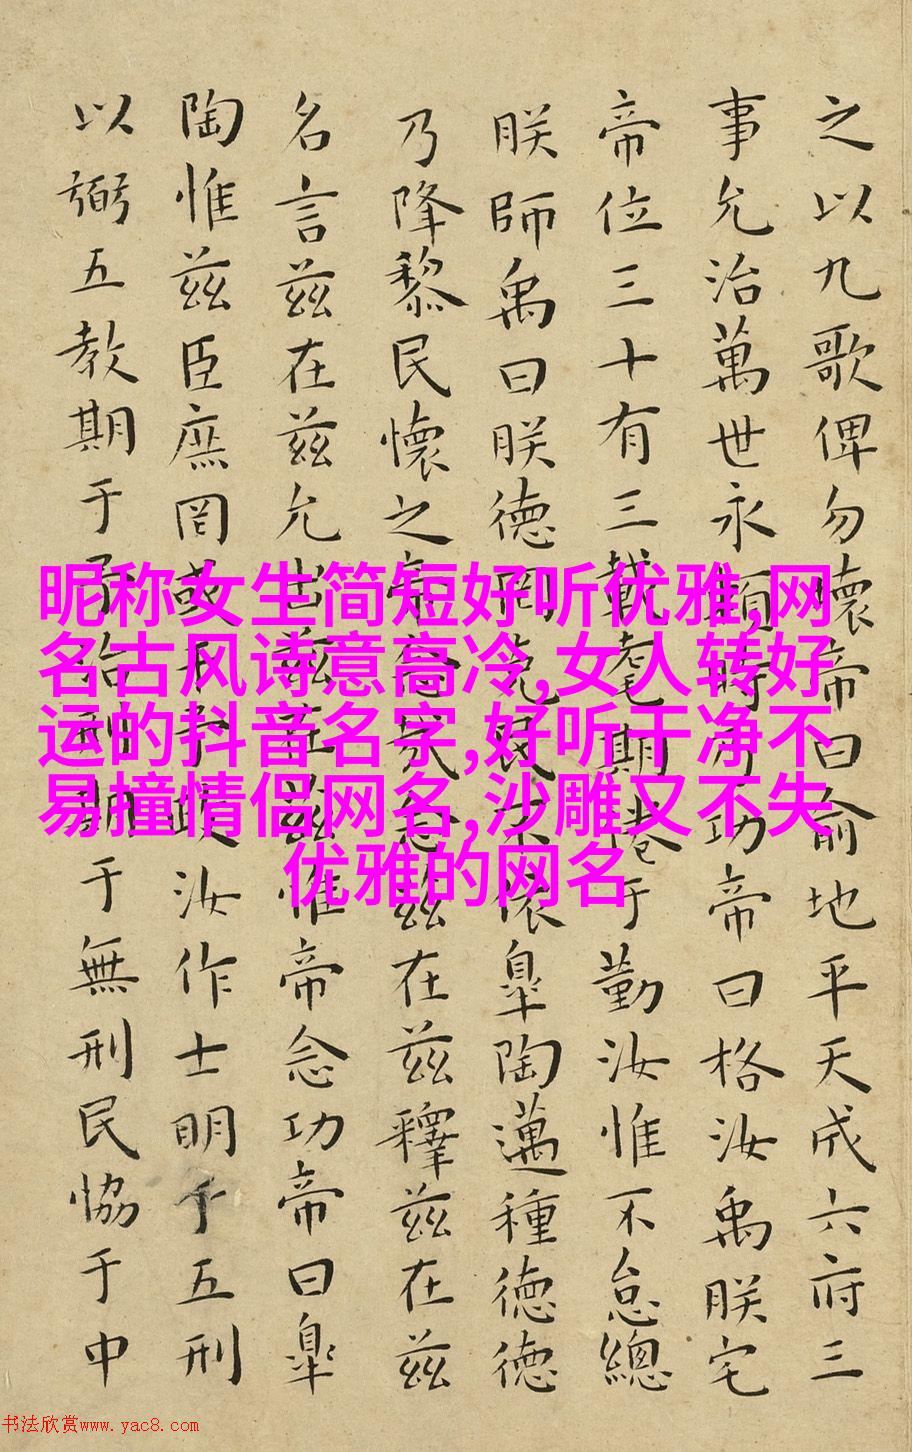 之以九歌俾勿懷帝曰俞地平天成六府三
事允治萬世永賴時乃功帝曰格汝禹朕宅
帝位三十有三載耄期倦于勤汝惟不怠總
朕師禹曰朕德罔克民不依皐陶邁種德德
乃降黎民懷之帝念哉念茲在茲釋茲在茲
名言茲在茲允出茲在茲惟帝念功帝曰皐
陶惟茲臣庶罔或干予汝作士明于五刑
以弼五教期于予治刑期于無刑民協于中
昵称女生简短好听优雅,网
名古风诗意高冷,女人转好
运的抖音名字,好听干净不
易撞情侣网名,沙雕又不失
优雅的网名
书法欣赏www.yac8.com